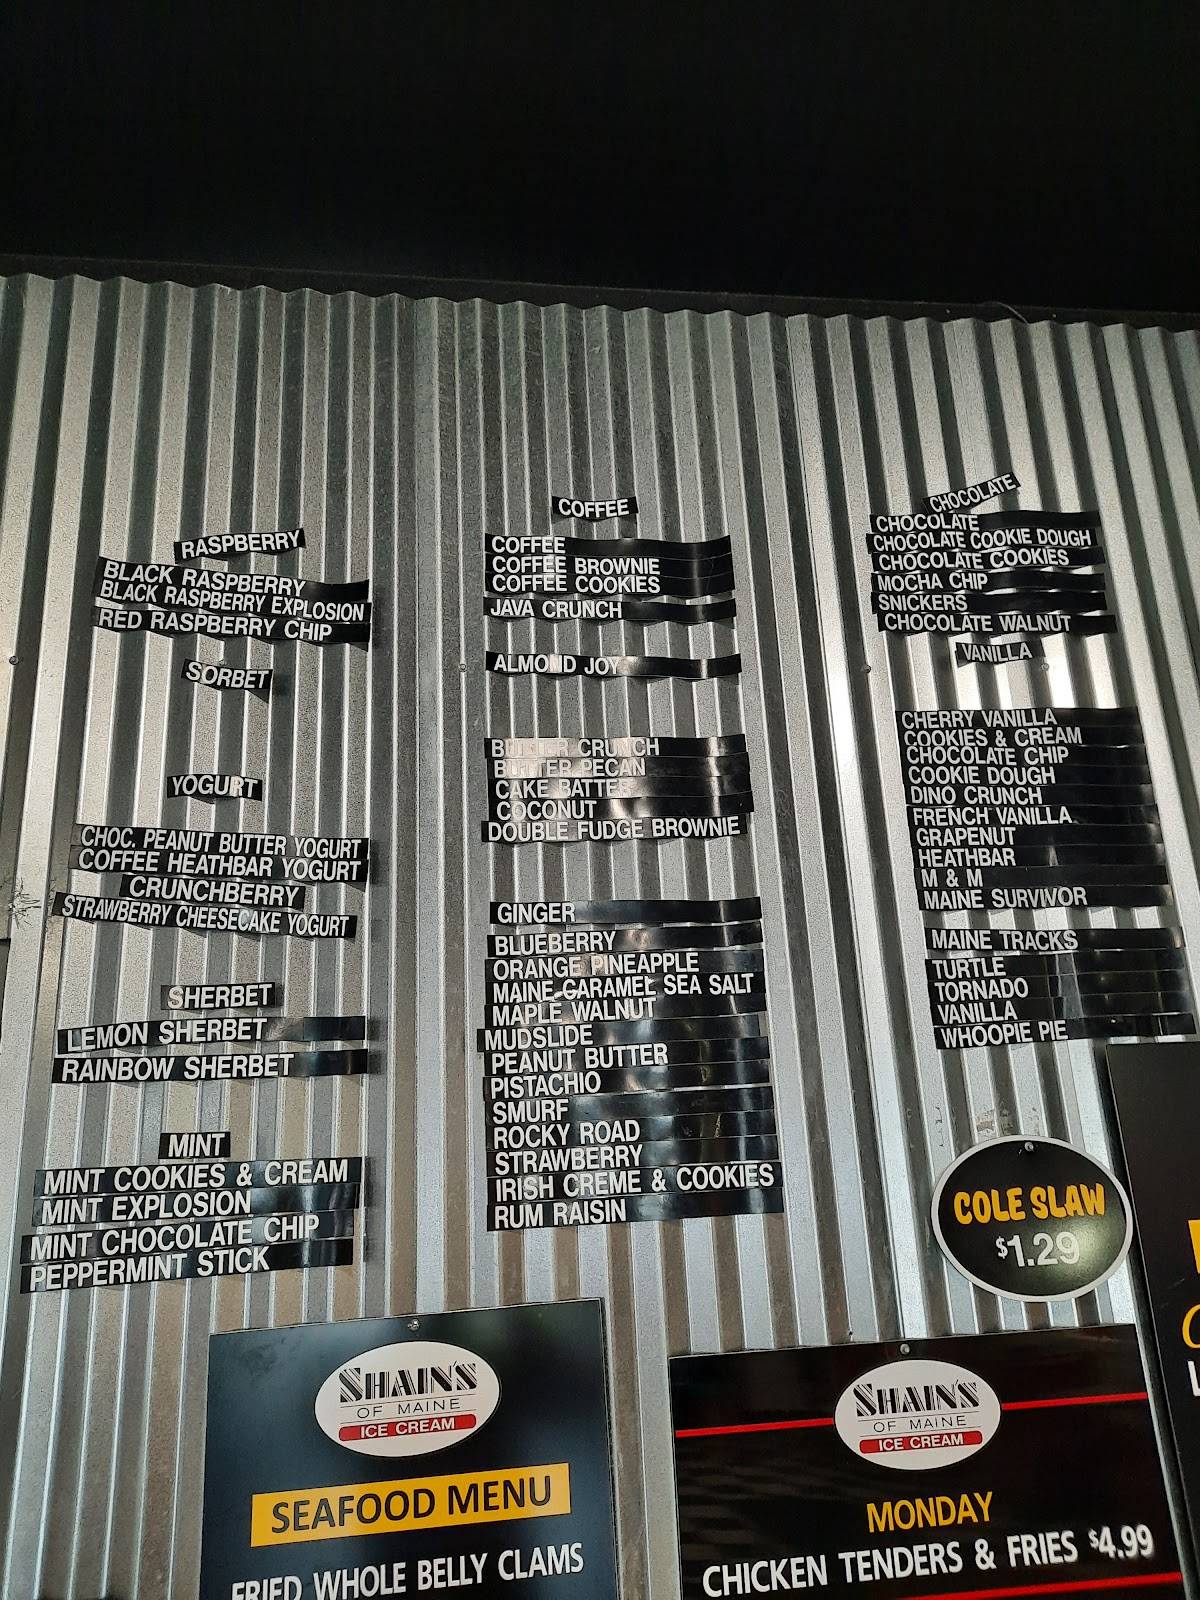 RASPBERRY
BLACK RASPBERRY
BLACK RASPBERRY EXPLOSION
RED RASPBERRY CHIP
SORBET
YOGURT
CHOC. PEANUT BUTTER YOGURT
COFFEE HEATHBAR YOGURT
CRUNCHBERRY
STRAWBERRY CHEESECAKE YOGURT
SHERBET
LEMON SHERBET
RAINBOW SHERBET
MINT
MINT COOKIES & CREAM
MINT EXPLOSION
MINT CHOCOLATE CHIP
PEPPERMINT STICK
COFFEE
COFFEE
COFFEE BROWNIE
COFFEE COOKIES
JAVA CRUNCH
ALMOND JOY
BUTTER CRUNCH
BUTTER PECAN
CAKE BATTER
COCONUT
DOUBLE FUDGE BROWNIE
GINGER
BLUEBERRY
ORANGE PINEAPPLE
MAINE CARAMEL SEA SALT
MAPLE WALNUT
MUDSLIDE
PEANUT BUTTER
PISTACHIO
SMURF
ROCKY ROAD
STRAWBERRY
IRISH CREME & COOKIES
RUM RAISIN
CHOCOLATE
CHOCOLATE
CHOCOLATE COOKIE DOUGH
CHOCOLATE COOKIES
MOCHA CHIP
SNICKERS
CHOCOLATE WALNUT
VANILLA
CHERRY VANILLA
COOKIES & CREAM
CHOCOLATE CHIP
COOKIE DOUGH
DINO CRUNCH
FRENCH VANILLA
GRAPENUT
HEATHBAR
M & M
MAINE SURVIVOR
MAINE TRACKS
TURTLE
TORNADO
VANILLA
WHOOPIE PIE
COLE SLAW
$1.29
SHAIN'S
OF MAINE
ICE CREAM
SEAFOOD MENU
FRIED WHOLE BELLY CLAMS
SHAIN'S
OF MAINE
ICE CREAM
MONDAY
CHICKEN TENDERS & FRIES $4.99